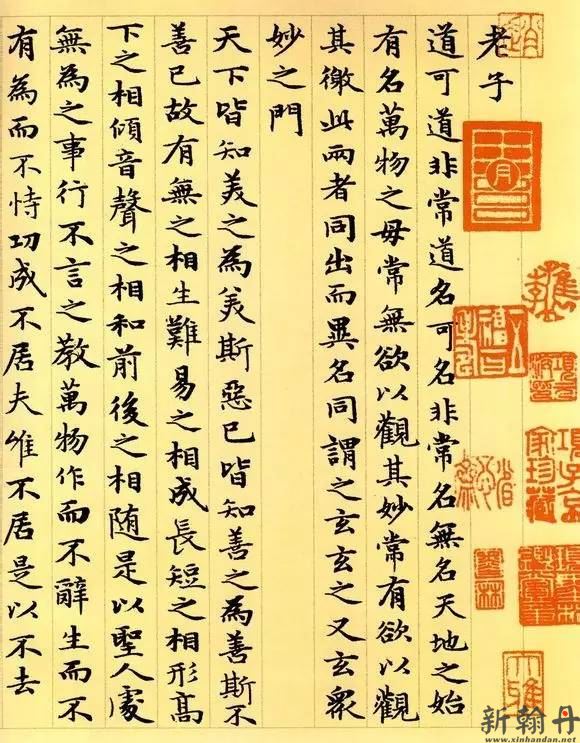 老子
道可道非常道名可名非常名無名天地之始
有名萬物之母常無欲以觀其妙常有欲以觀
其徼此兩者同出而異名同謂之玄玄之又玄眾
妙之門
天下皆知美之為美斯惡已皆知善之為善斯不
善已故有無之相生難易之相成長短之相形高
下之相傾音聲之相和前後之相随是以聖人處
無為之事行不言之教萬物作而不辭生而不
有為而不恃功成不居夫惟不居是以不去
項子京
家珍藏
新翰丹
www.xinhandan.net